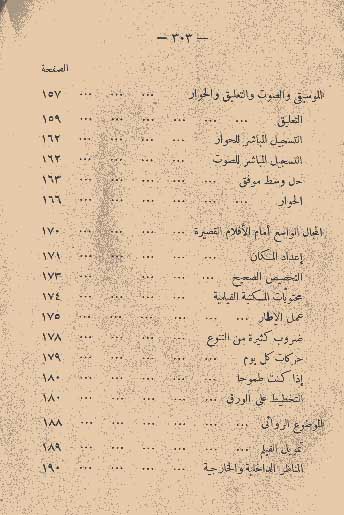 — ٣٠٣ —
الصفحة
الموسيقى والصوت والتعليق والحوار ... ... ... ١٥٧
التعليق ... ... ... ... ... ... ١٥٩
التسجيل المباشر للحوار ... ... ... ... ١٦٢
التسجيل المباشر للصوت ... ... ... ... ١٦٢
حل وسط موفق ... ... ... ... ... ١٦٣
الحوار ... ... ... ... ... ... ١٦٦
المجال الواسع أمام الأفلام القصيرة ... ... ... ١٧٠
إعداد المكان ... ... ... ... ... ١٧١
التخصيص الصحيح ... ... ... ... ... ١٧٣
محتويات المكتبة الفيلمية ... ... ... ... ١٧٤
عمل الإطار ... ... ... ... ... ... ١٧٥
ضروب كثيرة من التنوع ... ... ... ... ١٧٨
حركات كل يوم ... ... ... ... ... ١٧٩
إذا كنت طموحا ... ... ... ... ... ١٨٠
التخطيط على الورق ... ... ... ... ... ١٨٠
الموضوع الروائى ... ... ... ... ... ... ١٨٨
تمويل الفيلم ... ... ... ... ... ... ١٨٩
المناظر الداخلية والخارجية ... ... ... ... ١٩٠